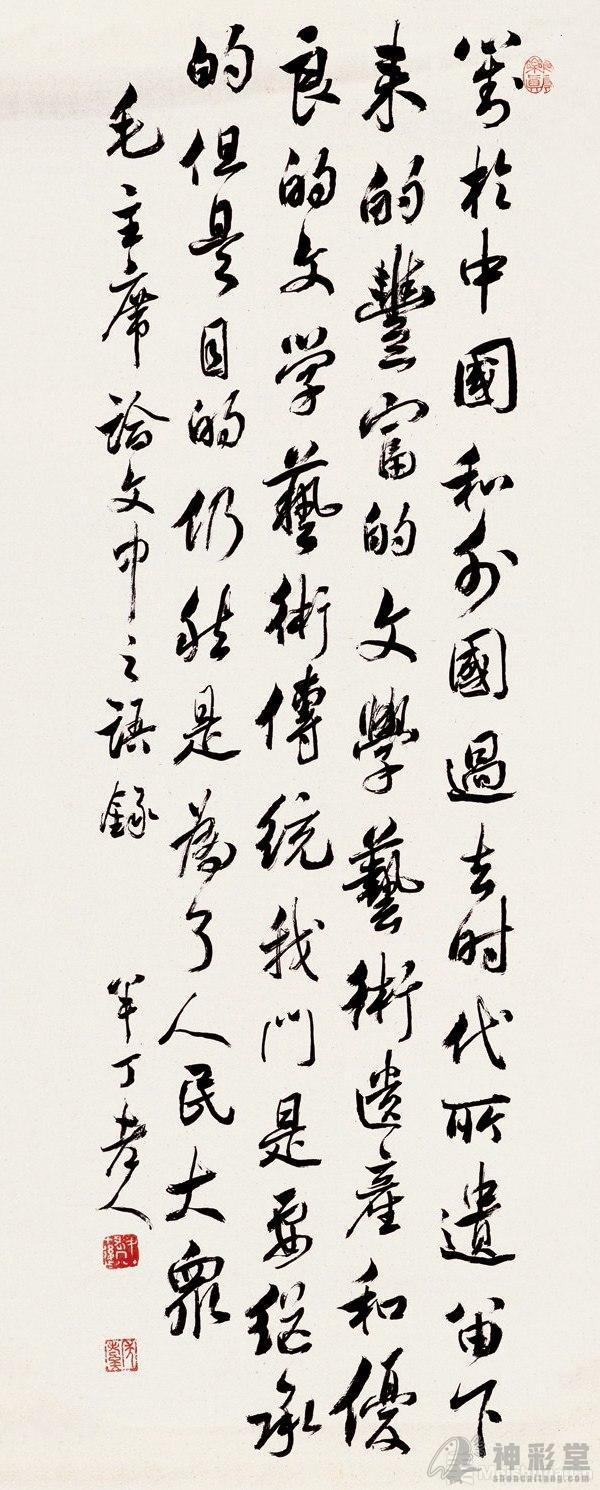 對於中國和外國過去时代所遺留下
来的豐富的文學藝術遗產和優
良的文学藝術傳統我门是要继承
的但是目的仍然是為了人民大眾
毛主席論文中之語錄
半丁老人
神彩堂
shencaitang.com